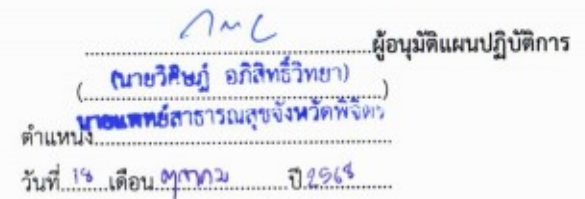 ผู้อนุมัติแผนปฏิบัติการ
(นายวิศิษฎ์ อภิสิทธิ์วิทยา)
ตำแหน่ง นายแพทย์สาธารณสุขจังหวัดพิจิตร
วันที่ 18 เดือน ตุลาคม ปี 2568